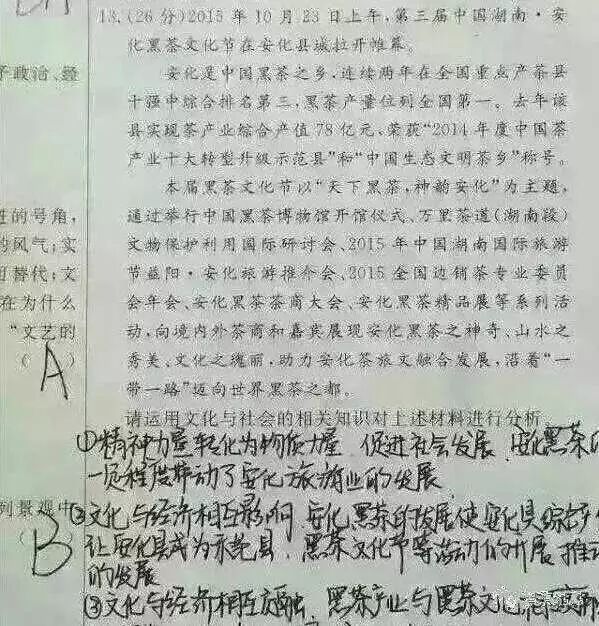 13.(26分)2015年10月23日上午,第三届中国湖南·安
化黑茶文化节在安化县城拉开帷幕。
安化是中国黑茶之乡,连续两年在全国重点产茶县
十强中综合排名第三,黑茶产量位列全国第一。去年该
县实现茶产业综合产值78亿元,荣获“2014年度中国茶
产业十大转型升级示范县”和“中国生态文明茶乡”称号。
本届黑茶文化节以“天下黑茶,神韵安化”为主题,
通过举行中国黑茶博物馆开馆仪式、万里茶道(湖南段)
文物保护利用国际研讨会、2015年中国湖南国际旅游
节益阳·安化旅游推介会、2015全国边销茶专业委员
会年会、安化黑茶茶商大会、安化黑茶精品展等系列活
动,向境内外茶商和嘉宾展现安化黑茶之神奇、山水之
秀美、文化之瑰丽,助力安化茶旅文融合发展,沿着“一
带一路”迈向世界黑茶之都。
请运用文化与社会的相关知识对上述材料进行分析
①精神力量转化为物质力量,促进社会发展,安化黑茶
一定程度带动了安化旅游业的发展
②文化与经济相互影响,安化黑茶的发展使安化县综合
让安化县成为示范县,黑茶文化节等活动的开展,推动
的发展
③文化与经济相互交融,黑茶产业与黑茶文化
子政治、经
的号角,
的风气;实
替代;文
在为什么
“文艺的
( A )
列景观中
( B )